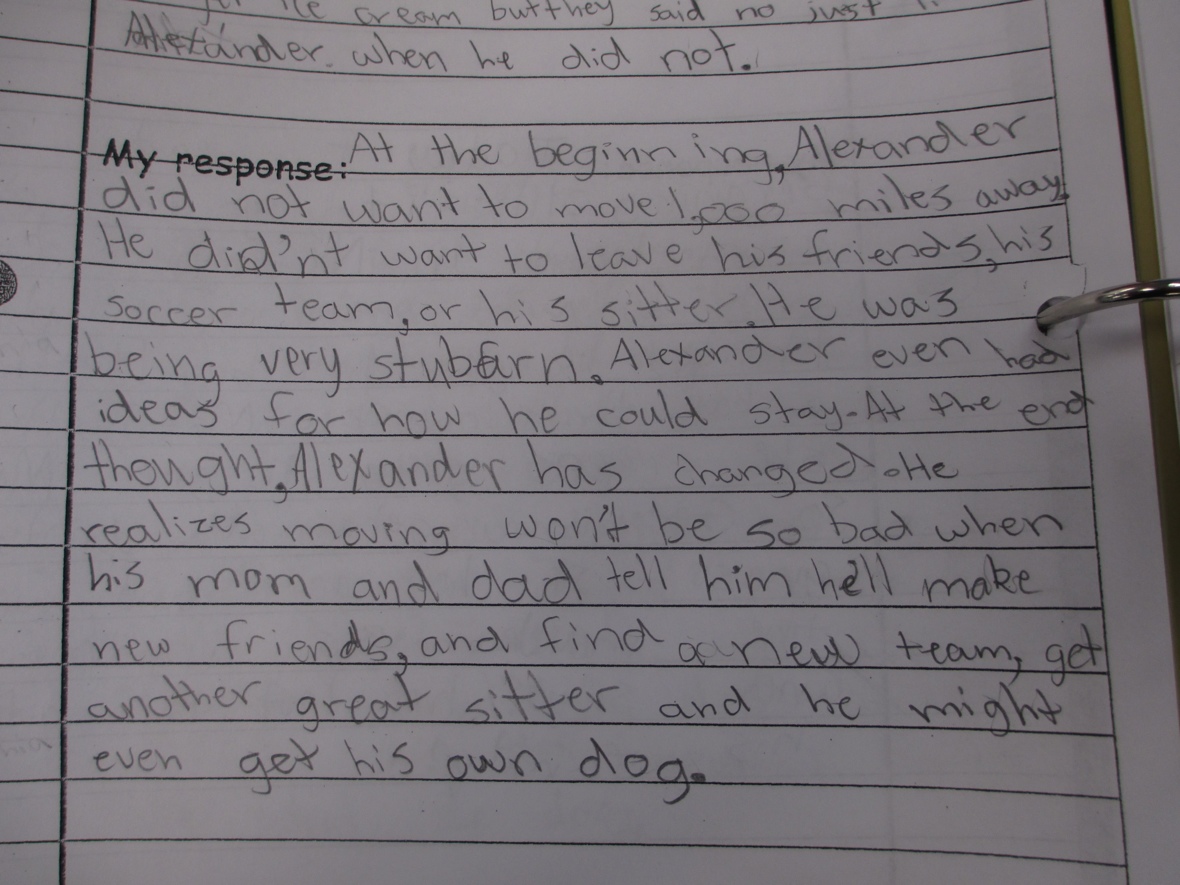 ice cream but they said no just
Alexander when he did not.
My response: At the beginning, Alexander
did not want to move 1,000 miles away.
He did'nt want to leave his friends, his
soccer team, or his sitter. He was
being very stubarn. Alexander even had
ideas for how he could stay. At the end
thought, Alexander has changed. He
realizes moving won't be so bad when
his mom and dad tell him he'll make
new friends, and find a new team, get
another great sitter and he might
even get his own dog.